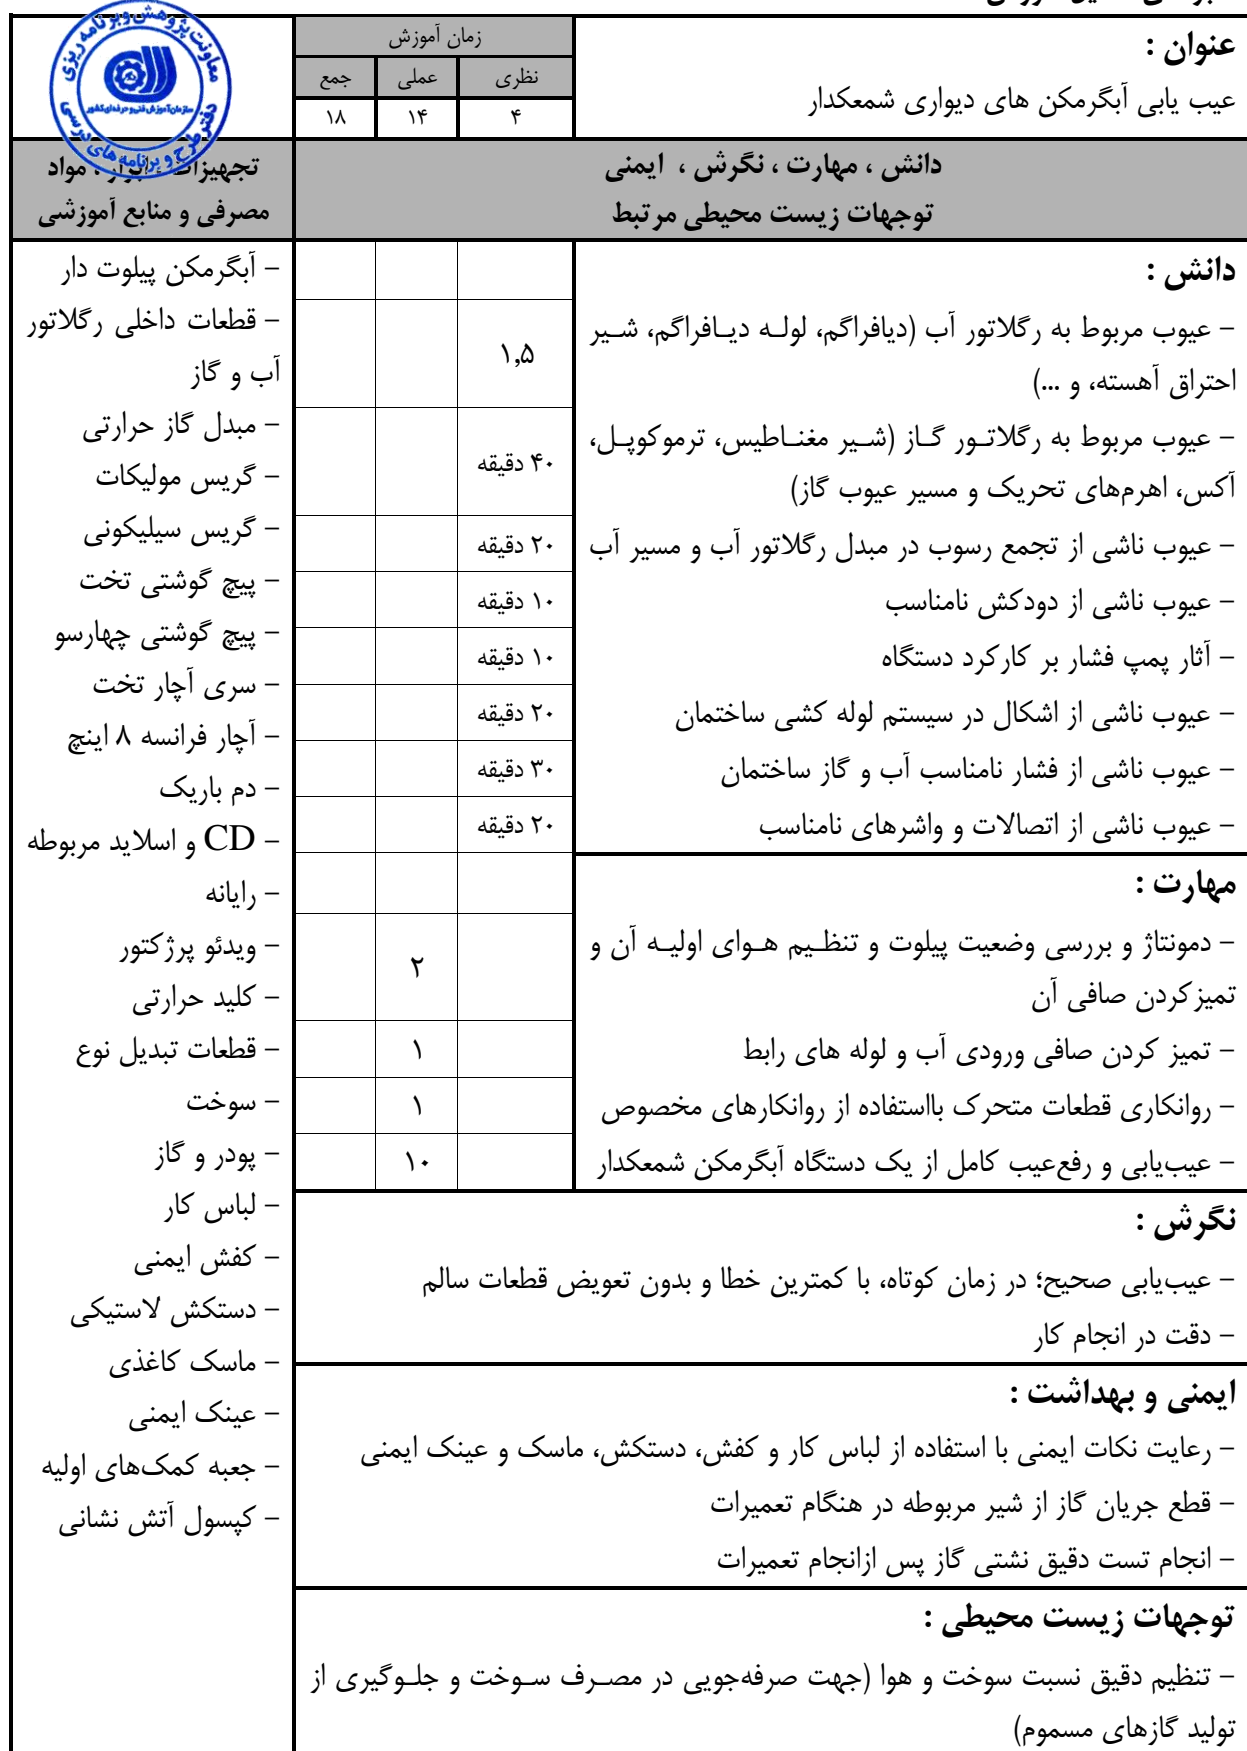 عنوان :
عیب یابی آبگرمکن های دیواری شمعکدار
زمان آموزش
نظری
عملی
جمع
۴
۱۴
۱۸
معاونت پژوهش و برنامه ریزی
سازمان آموزش فنی و حرفه‌ای کشور
دفتر طرح و برنامه های درسی
دانش ، مهارت ، نگرش ، ایمنی
توجهات زیست محیطی مرتبط
تجهیزات ، ابزار ، مواد
مصرفی و منابع آموزشی
دانش :
- عیوب مربوط به رگلاتور آب (دیافراگم، لوله دیافراگم، شیر
احتراق آهسته، و ...)
۱,۵
- عیوب مربوط به رگلاتور گاز (شیر مغناطیس، ترموکوپل،
آکس، اهرم‌های تحریک و مسیر عیوب گاز)
۴۰ دقیقه
- عیوب ناشی از تجمع رسوب در مبدل رگلاتور آب و مسیر آب
۲۰ دقیقه
- عیوب ناشی از دودکش نامناسب
۱۰ دقیقه
- آثار پمپ فشار بر کارکرد دستگاه
۱۰ دقیقه
- عیوب ناشی از اشکال در سیستم لوله کشی ساختمان
۲۰ دقیقه
- عیوب ناشی از فشار نامناسب آب و گاز ساختمان
۳۰ دقیقه
- عیوب ناشی از اتصالات و واشرهای نامناسب
۲۰ دقیقه
مهارت :
- دمونتاژ و بررسی وضعیت پیلوت و تنظیم هوای اولیه آن و
تمیزکردن صافی آن
۲
- تمیز کردن صافی ورودی آب و لوله های رابط
۱
- روانکاری قطعات متحرک بااستفاده از روانکارهای مخصوص
۱
- عیب‌یابی و رفع‌عیب کامل از یک دستگاه آبگرمکن شمعکدار
۱۰
نگرش :
- عیب‌یابی صحیح؛ در زمان کوتاه، با کمترین خطا و بدون تعویض قطعات سالم
- دقت در انجام کار
ایمنی و بهداشت :
- رعایت نکات ایمنی با استفاده از لباس کار و کفش، دستکش، ماسک و عینک ایمنی
- قطع جریان گاز از شیر مربوطه در هنگام تعمیرات
- انجام تست دقیق نشتی گاز پس ازانجام تعمیرات
توجهات زیست محیطی :
- تنظیم دقیق نسبت سوخت و هوا (جهت صرفه‌جویی در مصرف سوخت و جلوگیری از
تولید گازهای مسموم)
- آبگرمکن پیلوت دار
- قطعات داخلی رگلاتور
آب و گاز
- مبدل گاز حرارتی
- گریس مولیکات
- گریس سیلیکونی
- پیچ گوشتی تخت
- پیچ گوشتی چهارسو
- سری آچار تخت
- آچار فرانسه ۸ اینچ
- دم باریک
- CD و اسلاید مربوطه
- رایانه
- ویدئو پرژکتور
- کلید حرارتی
- قطعات تبدیل نوع
- سوخت
- پودر و گاز
- لباس کار
- کفش ایمنی
- دستکش لاستیکی
- ماسک کاغذی
- عینک ایمنی
- جعبه کمک‌های اولیه
- کپسول آتش نشانی